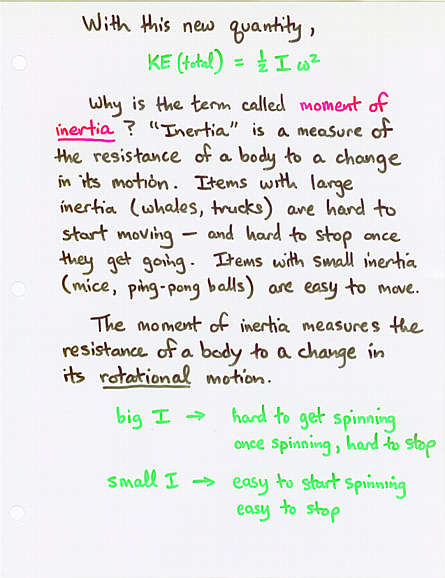 With this new quantity,
KE (total) = ½ I ω²
Why is the term called moment of
inertia? "Inertia" is a measure of
the resistance of a body to a change
in its motion. Items with large
inertia (whales, trucks) are hard to
start moving — and hard to stop once
they get going. Items with small inertia
(mice, ping-pong balls) are easy to move.
The moment of inertia measures the
resistance of a body to a change in
its rotational motion.
big I → hard to get spinning
once spinning, hard to stop
small I → easy to start spinning
easy to stop